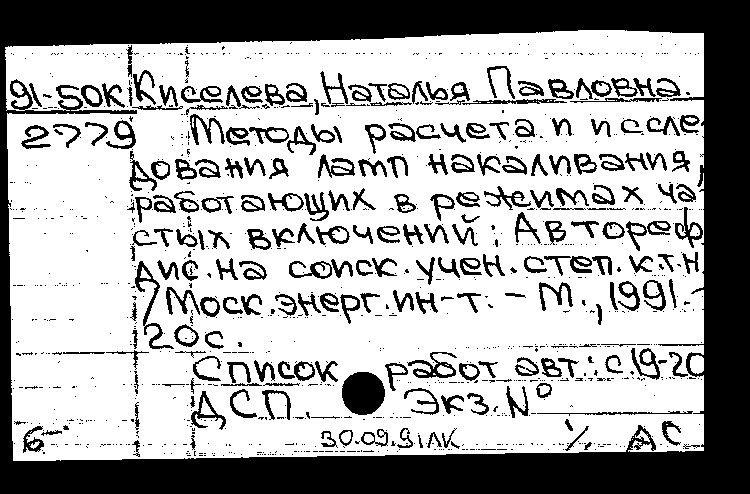 91-50К Киселева, Наталья Павловна.
2779 Методы расчета и иссле
дования ламп накаливания,
работающих в режимах ча
стых включений: Автореф
дис. на соиск. учен. степ. к.т.н
/Моск. энерг. ин-т. – М., 1991. -
20с.
Список работ авт.: с.19-20
ДСП. Экз. №
б- 30.09.91ЛК % АС